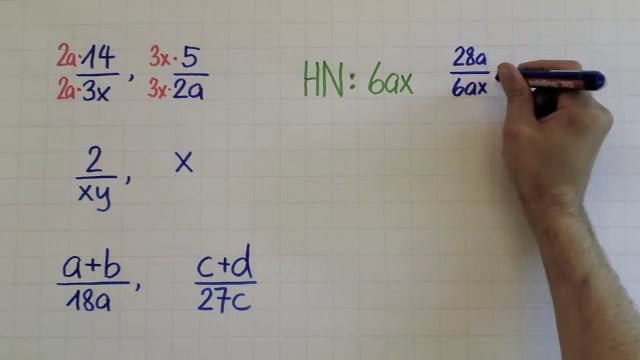 2a· 14/3x ·2a, 3x· 5/2a ·3x HN: 6ax 28a/6ax
2/xy, x
a+b/18a, c+d/27c